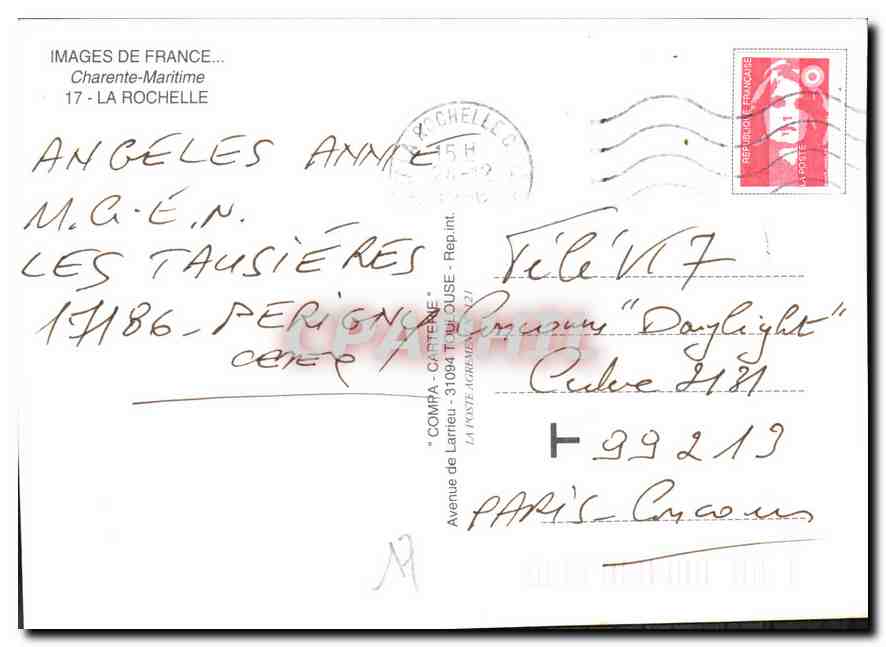 IMAGES DE FRANCE...
Charente-Maritime
17 - LA ROCHELLE
ANGÉLES ANNIE
M.G.É.N.
LES TAUSIÉRES
17186 - PERIGNY
CEDEX
LA ROCHELLE
15 H
RÉPUBLIQUE FRANÇAISE
LA POSTE
" COMPA - CARTERIE "
Avenue de Larrieu - 31094 TOULOUSE - Rep.int.
LA POSTE AGREMENT N° 121
Télé K7
Concours "Daylight"
3131
T 99213
PARIS - Concours
CPARAMA